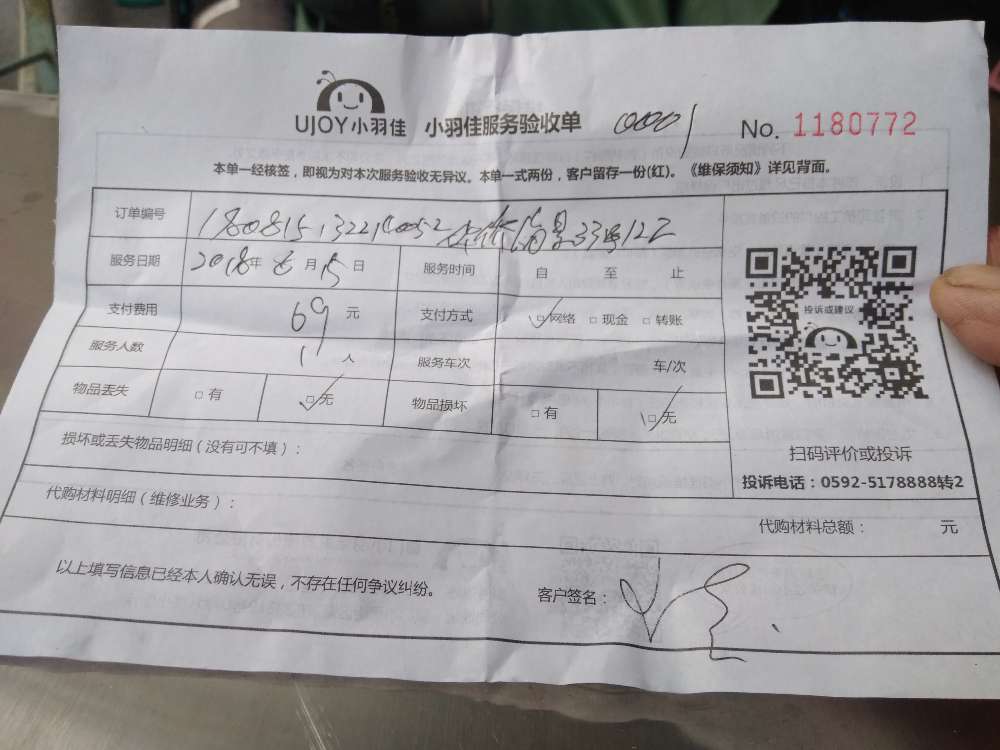 UJOY小羽佳 小羽佳服务验收单 00001 No. 1180772
本单一经核签，即视为对本次服务验收无异议。本单一式两份，客户留存一份(红)。《维保须知》详见背面。
订单编号
服务日期 2018年 8月 15日 服务时间 自 至 止
支付费用 69 元 支付方式 □网络 □现金 □转账
服务人数 1 人 服务车次 车/次
物品丢失 □有 □无 物品损坏 □有 □无
投诉或建议
扫码评价或投诉
投诉电话：0592-5178888转2
损坏或丢失物品明细（没有可不填）：
代购材料明细（维修业务）：
代购材料总额： 元
以上填写信息已经本人确认无误，不存在任何争议纠纷。 客户签名：